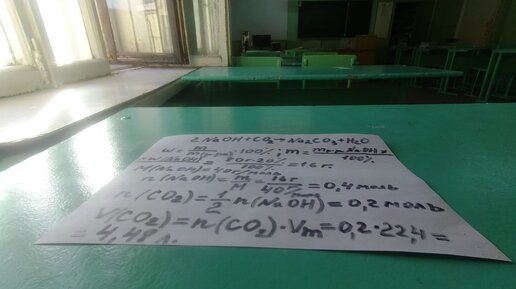 2NaOH+CO₂→Na₂CO₃+H₂O
W = m / m(р-ра) · 100%; m = m р-ра NaOH ×
× w(NaOH) / 100% = 80г·20% / 100% = 16г.
M(NaOH)=40г/моль
n(NaOH) = m / M = 16г / 40г/моль = 0,4 моль
n(CO₂) = 1/2 n(NaOH) = 0,2 моль
V(CO₂) = n(CO₂)·Vm = 0,2·22,4 =
= 4,48 л.